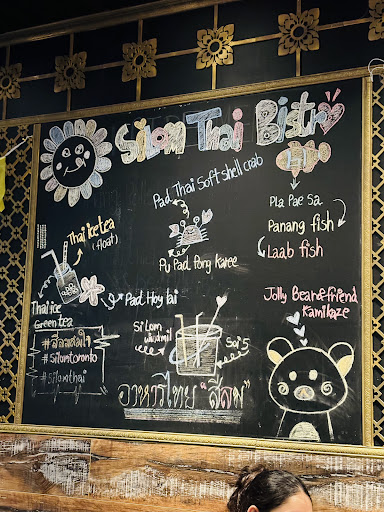 Silom Thai Bistro
Pad Thai Soft shell crab
Pla Pae Sa
Panang fish
Laab fish
Thai Ice tea
(float)
Pu Pad Pong Karee
Thai ice
Green tea
Pad Hoy lai
Jolly Bear & friend
Kamikaze
Silom
Soi 5
#silomtoronto
#silomthai
อาหารไทย "สีลม"